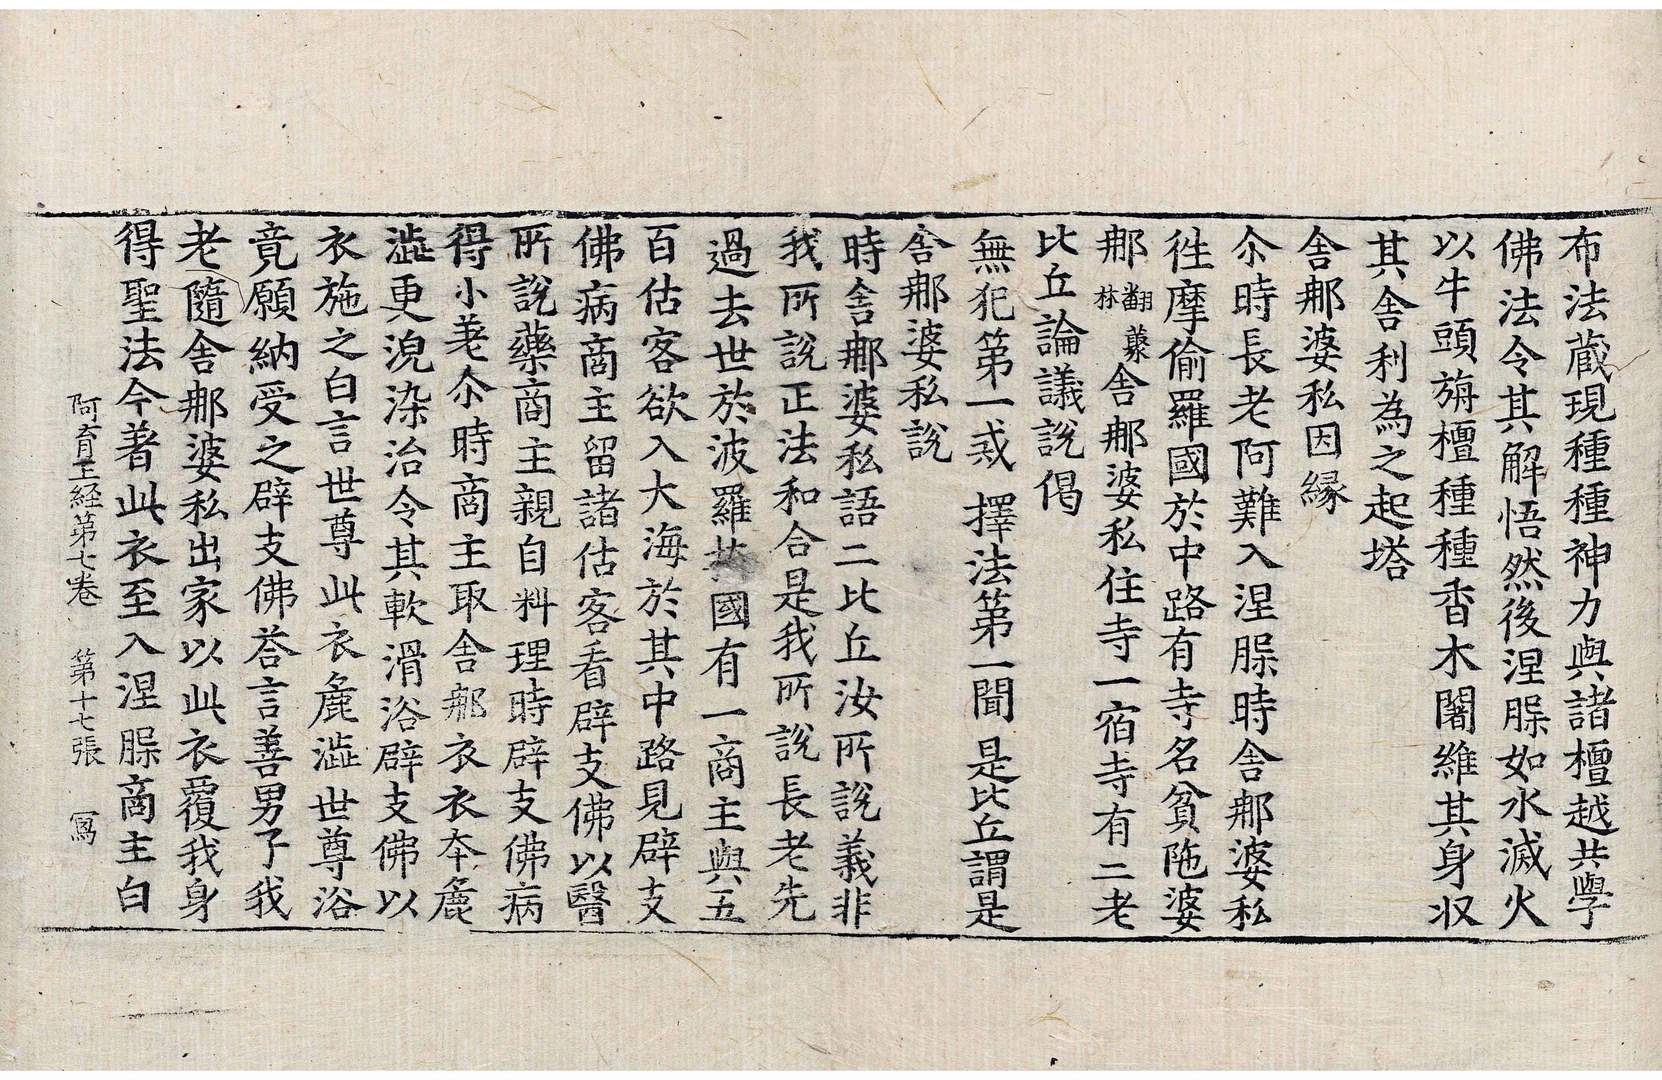 布法藏現種種神力與諸檀越共學
佛法令其解悟然後涅槃如水滅火
以牛頭旃檀種種香木闍維其身収
其舍利為之起塔
舍那婆私因縁
尒時長老阿難入涅槃時舍那婆私
徃摩偷羅國於中路有寺名貧陁婆
那翻叢林舍那婆私住寺一宿寺有二老
比丘論議說偈
無犯第一戒　擇法第一聞　是比丘謂是
舍那婆私說
時舍那婆私語二比丘汝所說義非
我所說正法和合是我所說長老先
過去世於波羅國有一商主與五
百估客欲入大海於其中路見辟支
佛病商主留諸估客看辟支佛以醫
所說藥商主親自料理時辟支佛病
得小差尒時商主取舍那衣衣夲麁
澁更浣染治令其軟滑浴辟支佛以
衣施之白言世尊此衣麁澁世尊浴
竟願納受之辟支佛荅言善男子我
老隨舍那婆私出家以此衣覆我身
得聖法今著此衣至入涅槃商主白
阿育王経第七卷　第十七張　冩